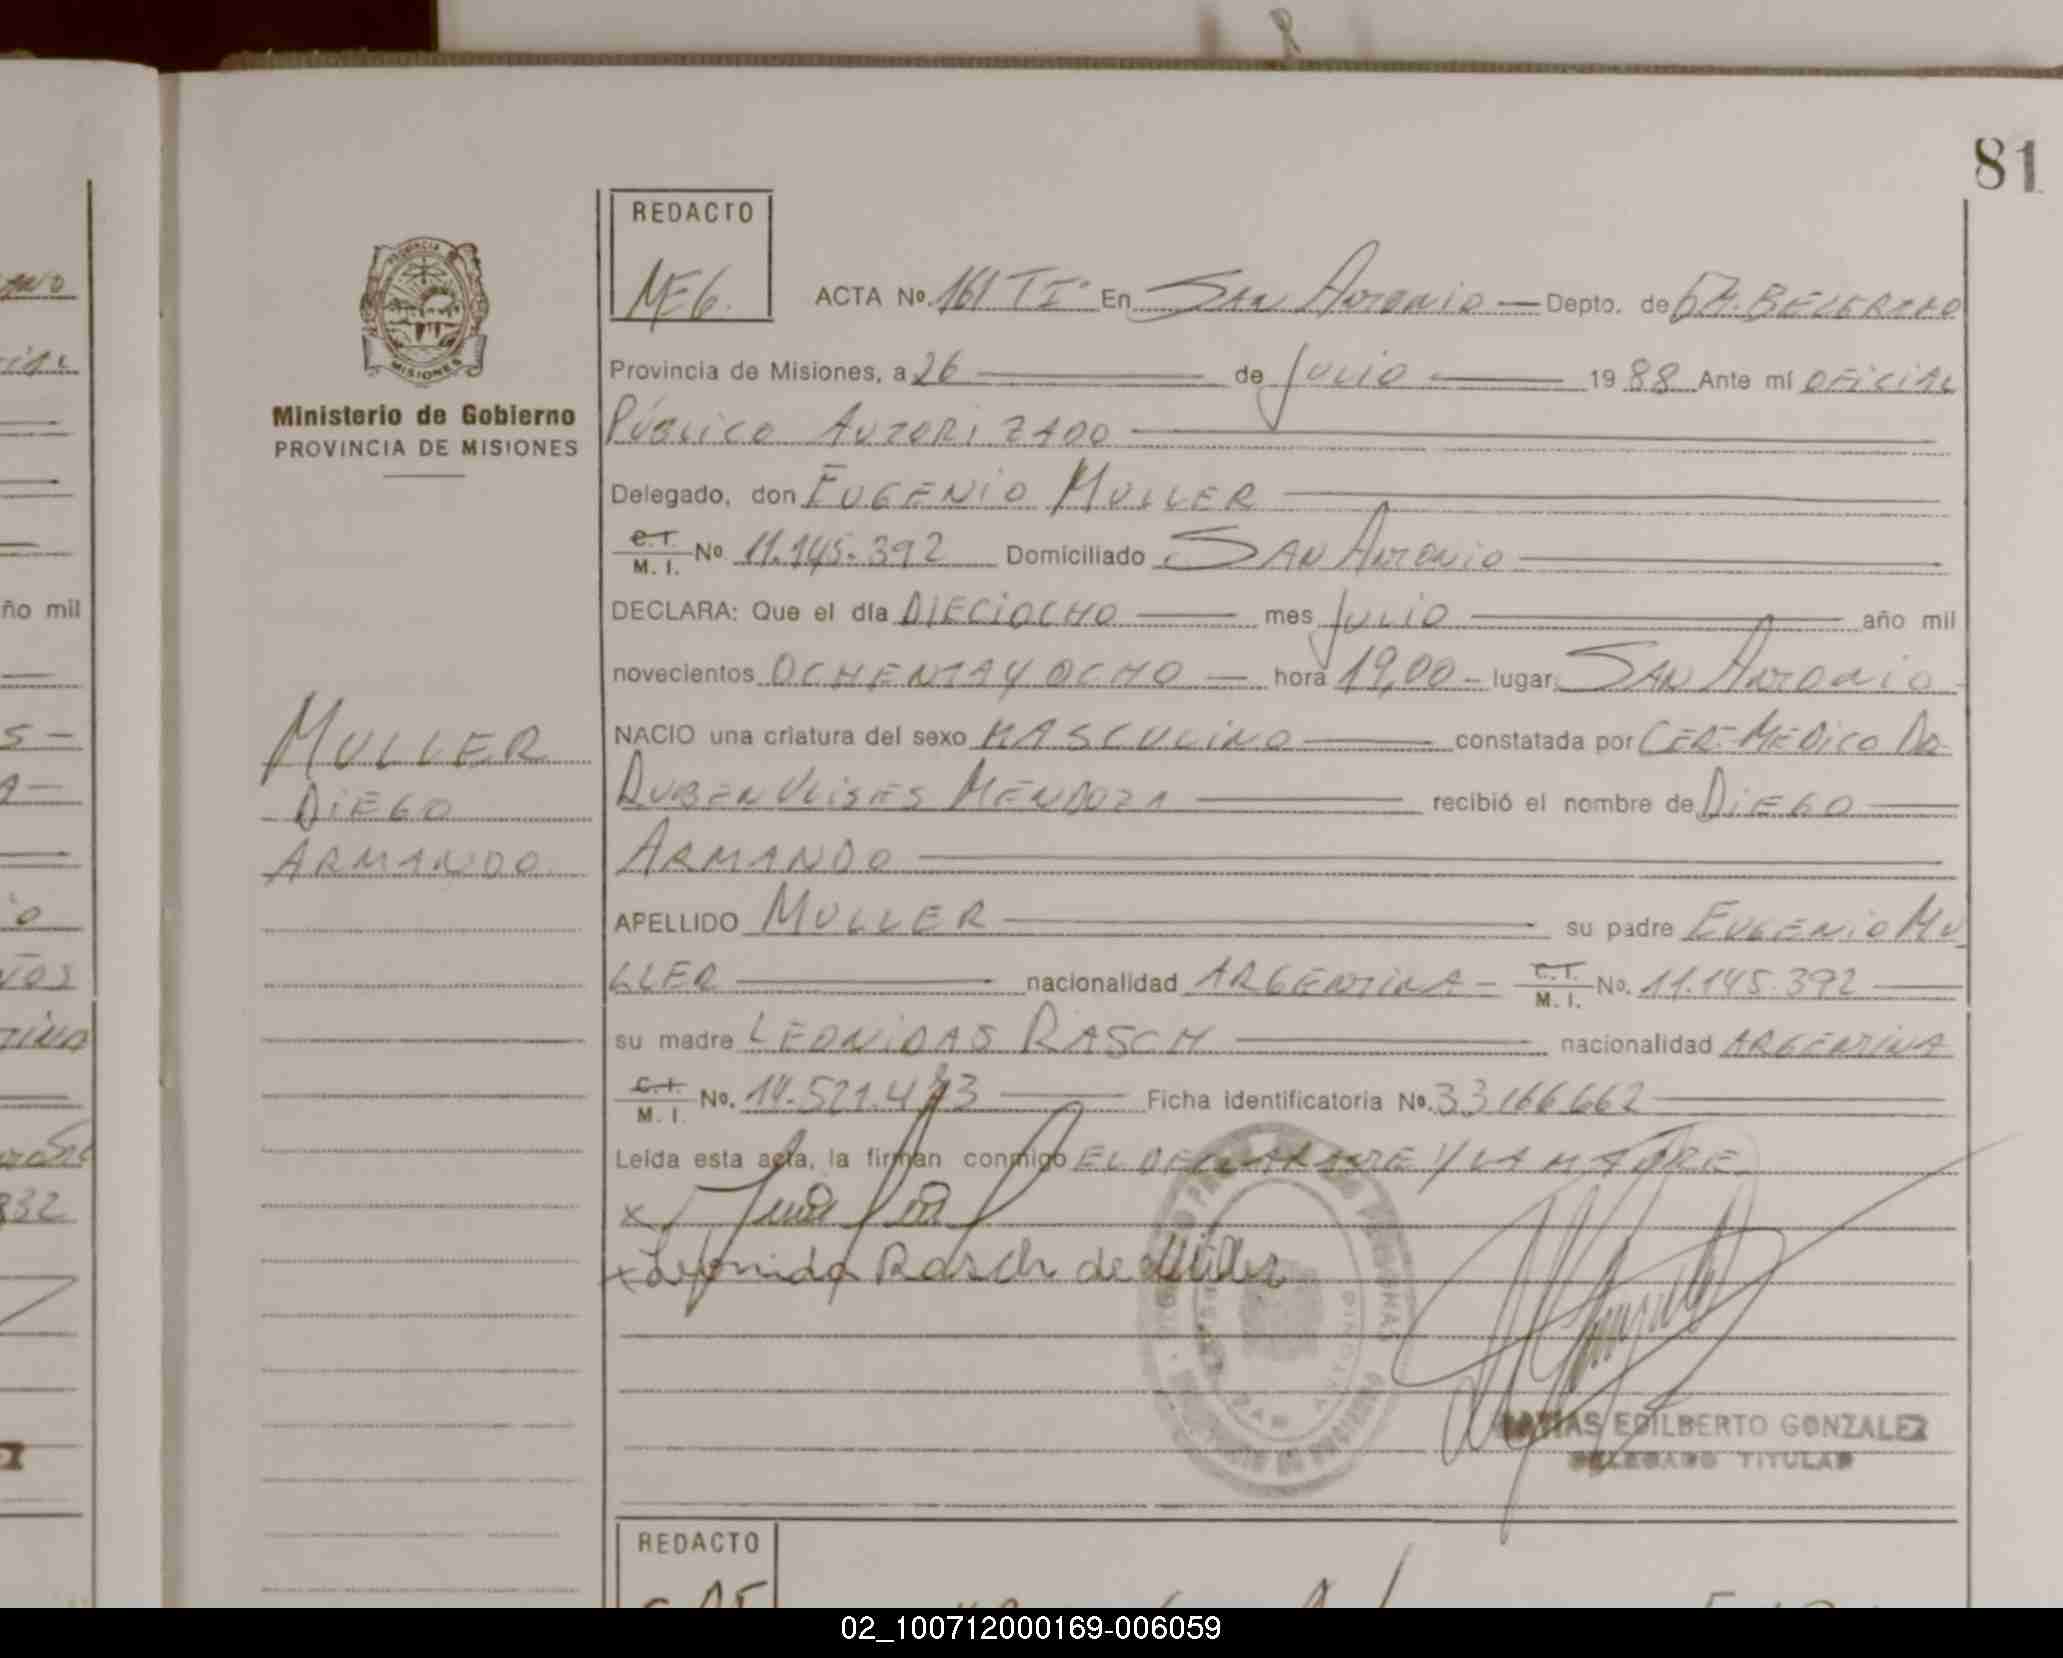 81
REDACTO
MEG.
ACTA No. 161 TIº En SAN ANTONIO Depto. de GR. BELGRANO
Provincia de Misiones, a 26 de JULIO 1988 Ante mí OFICIAL
PÚBLICO AUTORIZADO
Delegado, don EUGENIO MULLER
C.I. M. I. No. 11.145.392 Domiciliado SAN ANTONIO
DECLARA: Que el día DIECIOCHO mes JULIO año mil
novecientos OCHENTA Y OCHO hora 19,00 lugar SAN ANTONIO
NACIO una criatura del sexo MASCULINO constatada por CER. MEDICO DR
RUBEN ULISES MENDOZA recibió el nombre de DIEGO
ARMANDO
APELLIDO MULLER su padre EUGENIO MU
LLER nacionalidad ARGENTINA C.I. M. I. No. 11.145.392
su madre LEONIDAS RASCH nacionalidad ARGENTINA
C.I. M. I. No. Ficha identificatoria No. 33166662
Leída esta acta, la firman conmigo EL DECLARANTE Y LA MADRE
x
x Leonida Rasch de Müller
MATIAS EDILBERTO GONZALEZ
DELEGADO TITULAR
PROVINCIA
MISIONES
Ministerio de Gobierno
PROVINCIA DE MISIONES
MULLER
DIEGO
ARMANDO
año mil
332
REDACTO
02_100712000169-006059